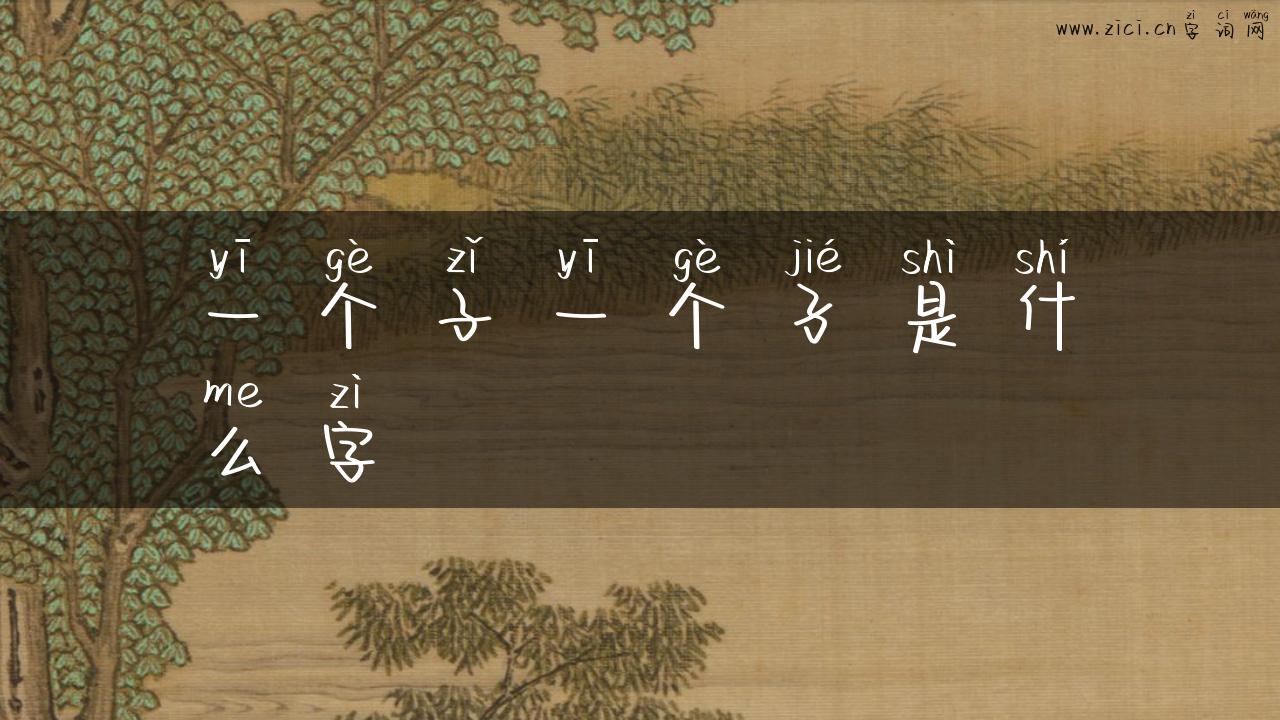 zì cí wǎng
www.zici.cn字词网
yī gè zǐ yī gè jié shì shí
一个子一个孑是什
me zì
么字